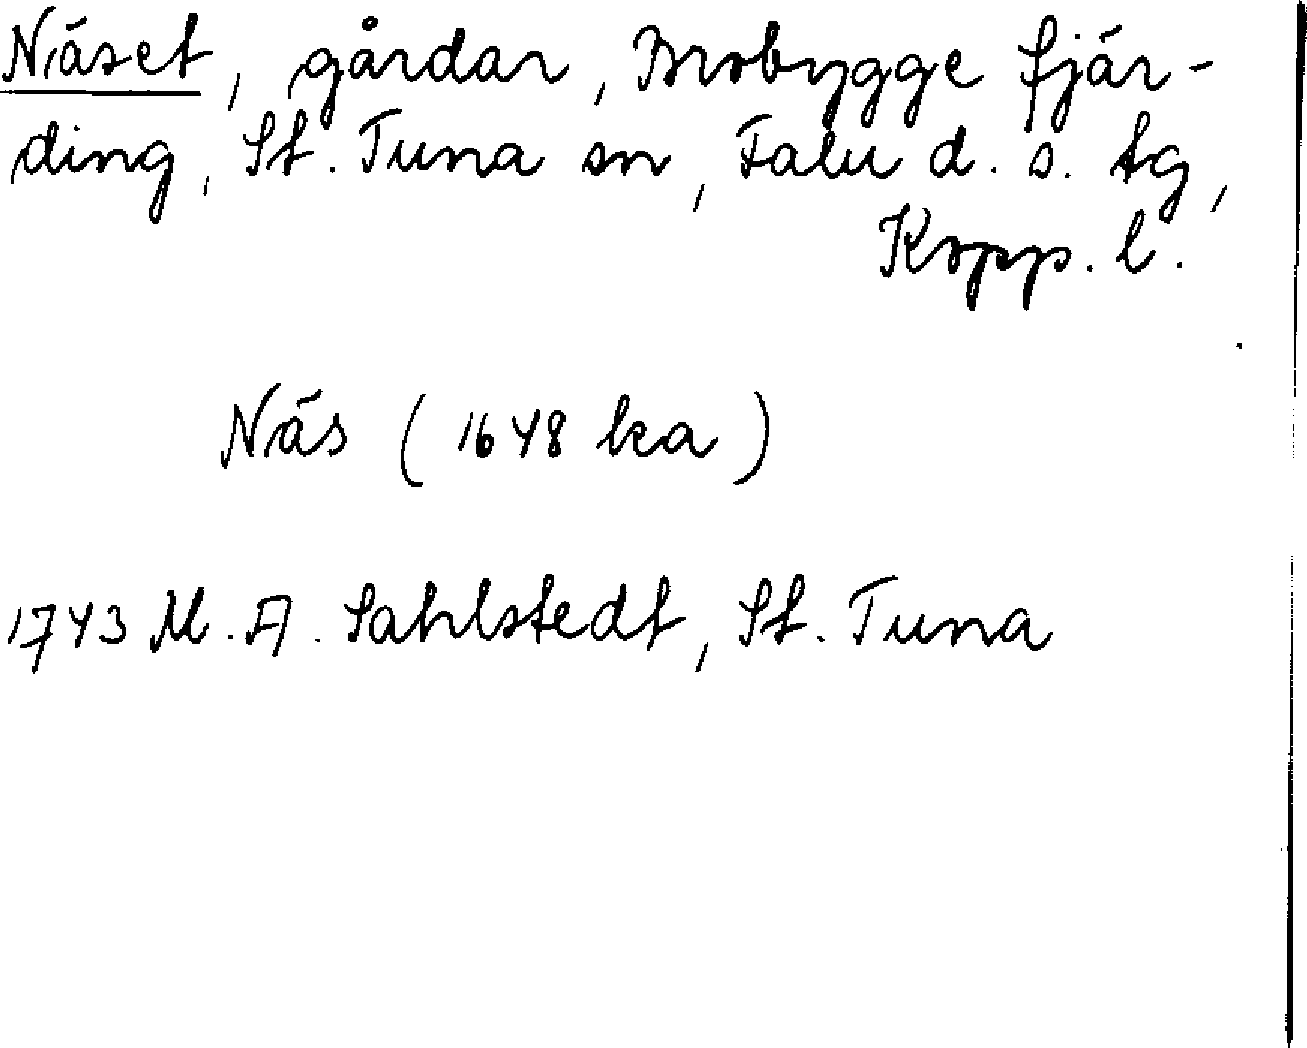 Näset, gårdar, Brobygge fjär-
ding, St. Tuna sn, Falu d. s. tg,
Kopp. l.
Näs (1648 lca)
1743 M. A. Sahlstedt, St. Tuna